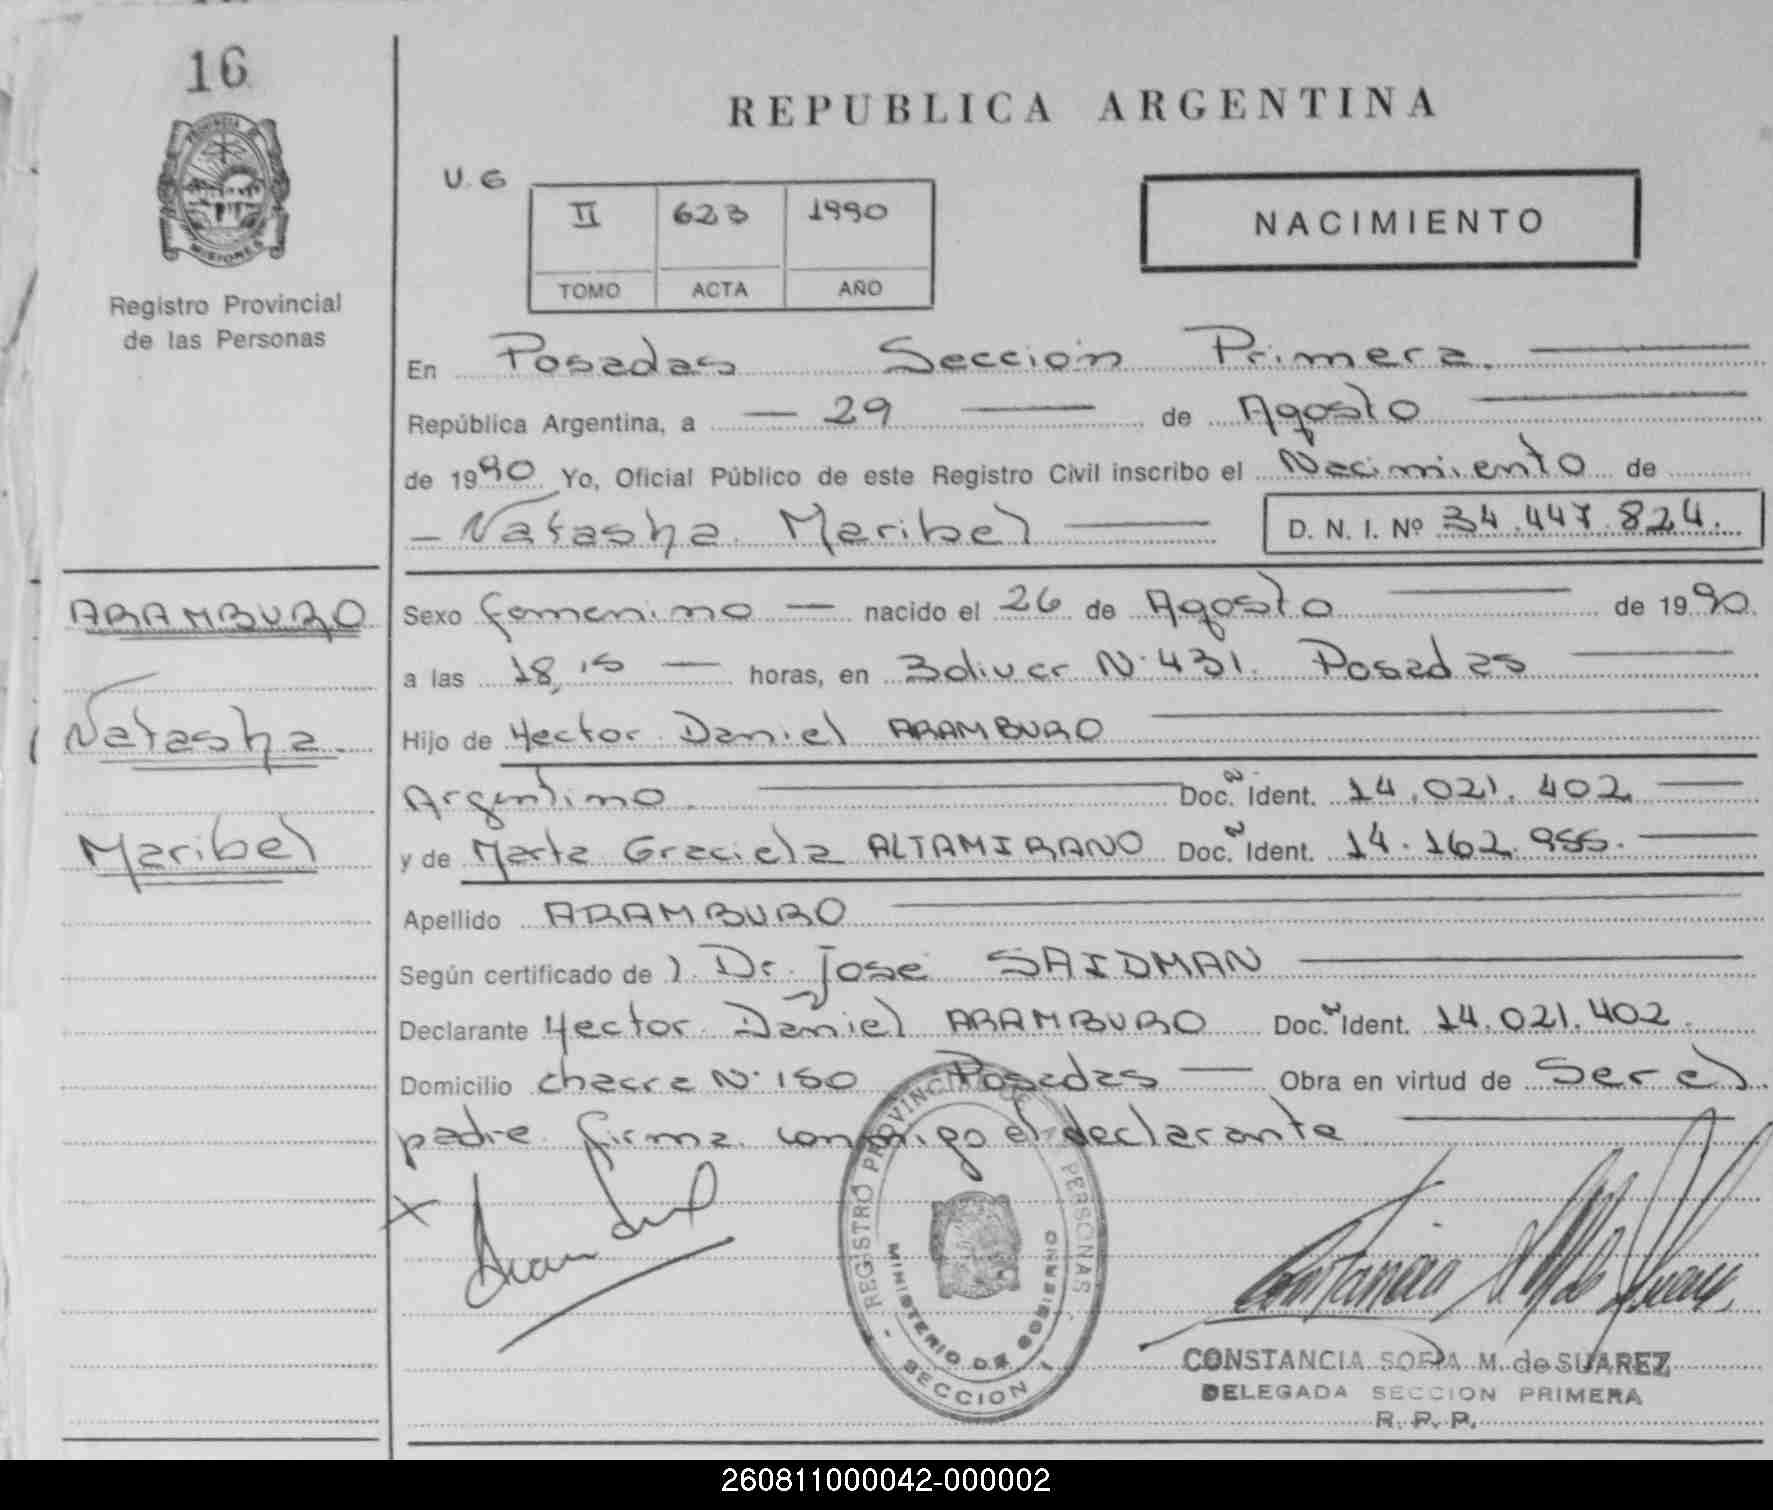 16
REPUBLICA ARGENTINA
PROVINCIA DE
MISIONES
Registro Provincial
de las Personas
U. G
II 623 1990
TOMO ACTA AÑO
NACIMIENTO
En Posadas Sección Primera.
República Argentina, a 29 de Agosto
de 1990 Yo, Oficial Público de este Registro Civil inscribo el Nacimiento de
Natasha Maribel D. N. I. Nº 34.447.824.
ARAMBURO
Natasha
Maribel
Sexo femenino nacido el 26 de Agosto de 1990
a las 18,15 horas, en Bolivar Nº 431. Posadas
Hijo de Hector Daniel ARAMBURO
Argentino. Doc. Ident. 14.021.402
y de Marta Graciela ALTAMIRANO Doc. Ident. 14.162.955.
Apellido ARAMBURO
Según certificado de Dr. José SAIDMAN
Declarante Hector Daniel ARAMBURO Doc. Ident. 14.021.402.
Domicilio chacra Nº 150 Posadas Obra en virtud de Ser el
padre firma conmigo el declarante
REGISTRO PROVINCIAL DE LAS PERSONAS
MINISTERIO DE GOBIERNO
SECCION 1
CONSTANCIA SOFIA M. de SUAREZ
DELEGADA SECCION PRIMERA
R. P. P.
260811000042-000002